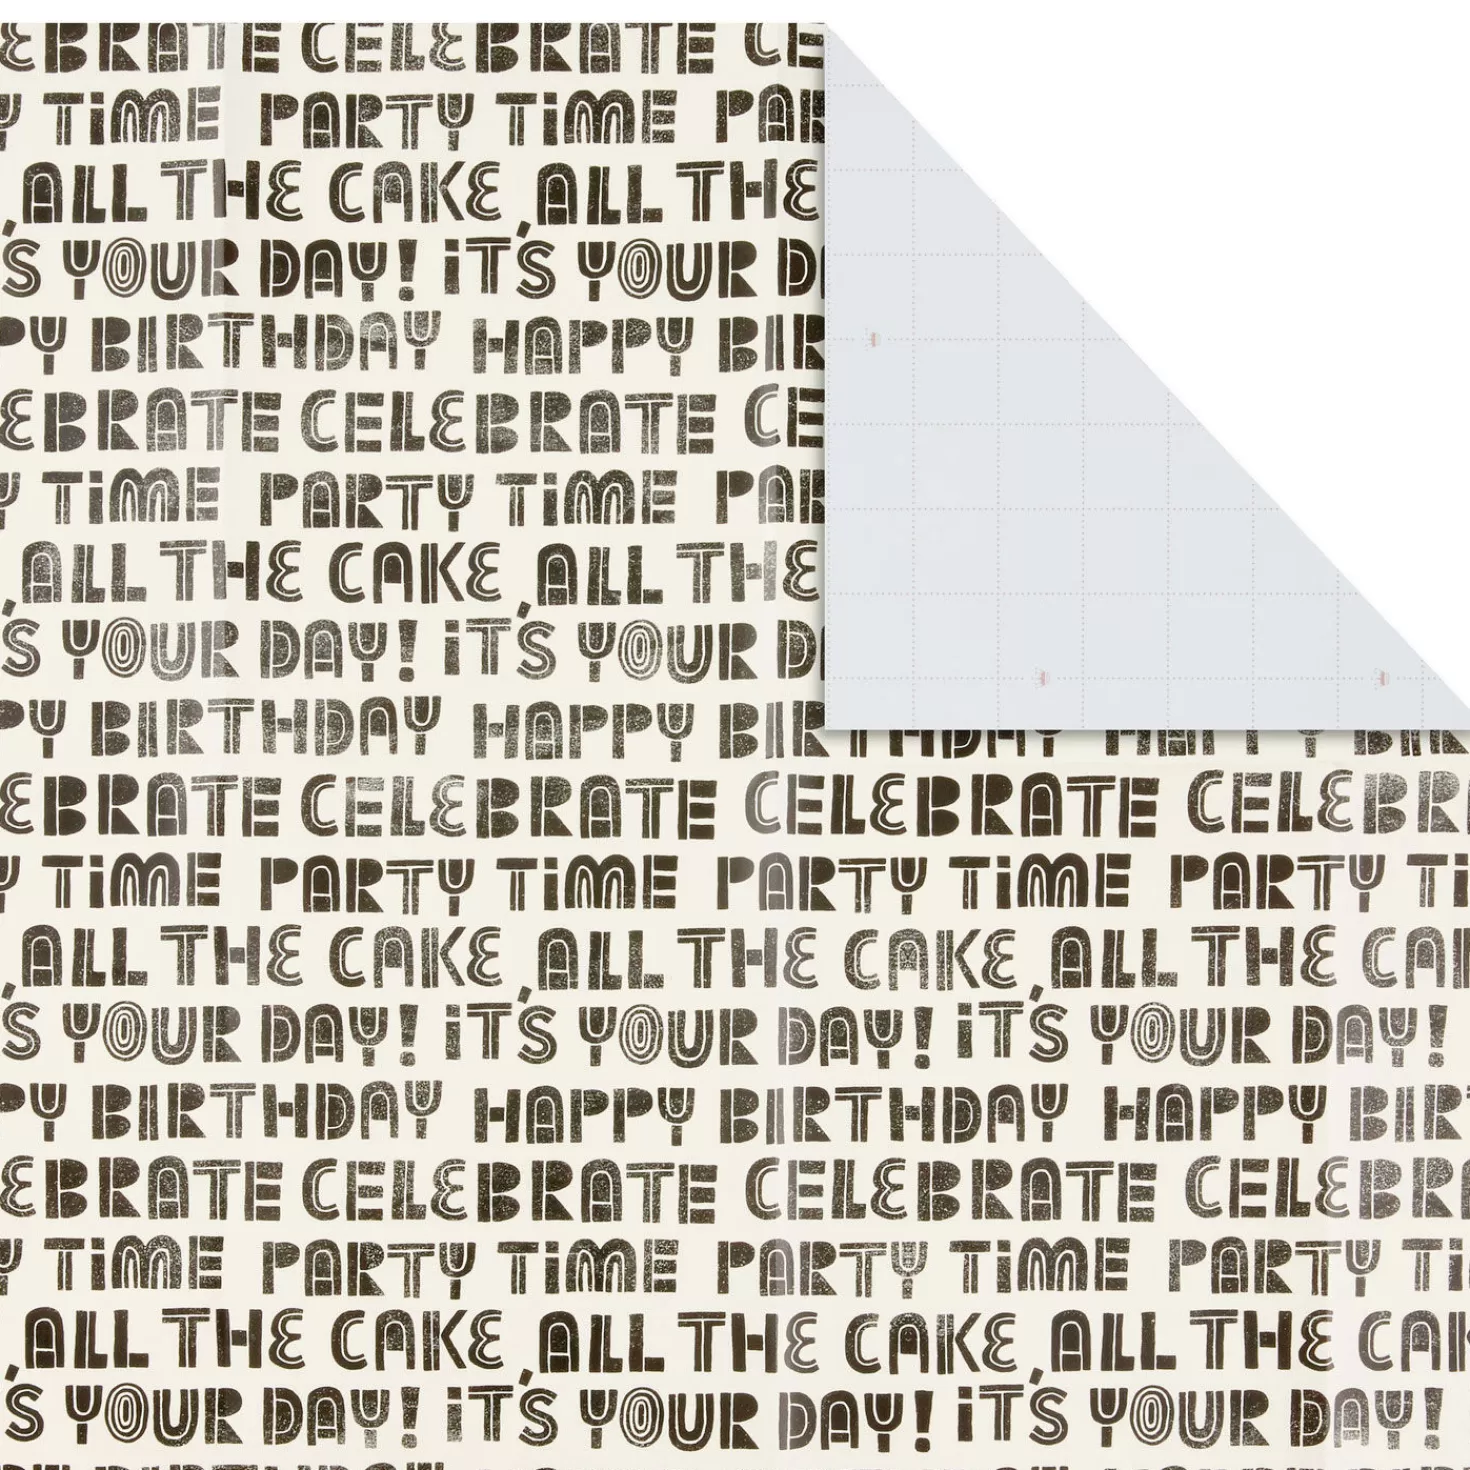 EBRATE CELEBRATE CE
Y TiME PARTY TiME PAR
ALL THE CAKE ALL THE
'S YOUR DAY! iT'S YOUR D
PY BIRTHDAY HAPPY BIR
EBRATE CELEBRATE CE
Y TiME PARTY TiME PAR
ALL THE CAKE ALL THE
'S YOUR DAY! iT'S YOUR D
PY BIRTHDAY HAPPY BIRTHDAY HAPPY BIR
EBRATE CELEBRATE CELEBRATE CELEBR
Y TiME PARTY TiME PARTY TiME PARTY Ti
ALL THE CAKE ALL THE CAKE ALL THE CAK
'S YOUR DAY! iT'S YOUR DAY! iT'S YOUR DAY!
PY BIRTHDAY HAPPY BIRTHDAY HAPPY BIRT
EBRATE CELEBRATE CELEBRATE CELEBR
Y TiME PARTY TiME PARTY TiME PARTY Ti
ALL THE CAKE ALL THE CAKE ALL THE CAK
'S YOUR DAY! iT'S YOUR DAY! iT'S YOUR DAY!